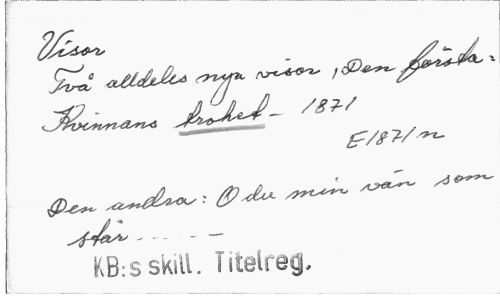 Visor
Två alldeles nya visor, Den första:
Kvinnans trohet - 1871
E1871n
Den andra: O du min vän som
står - - - - - -
KB:s skill. Titelreg.